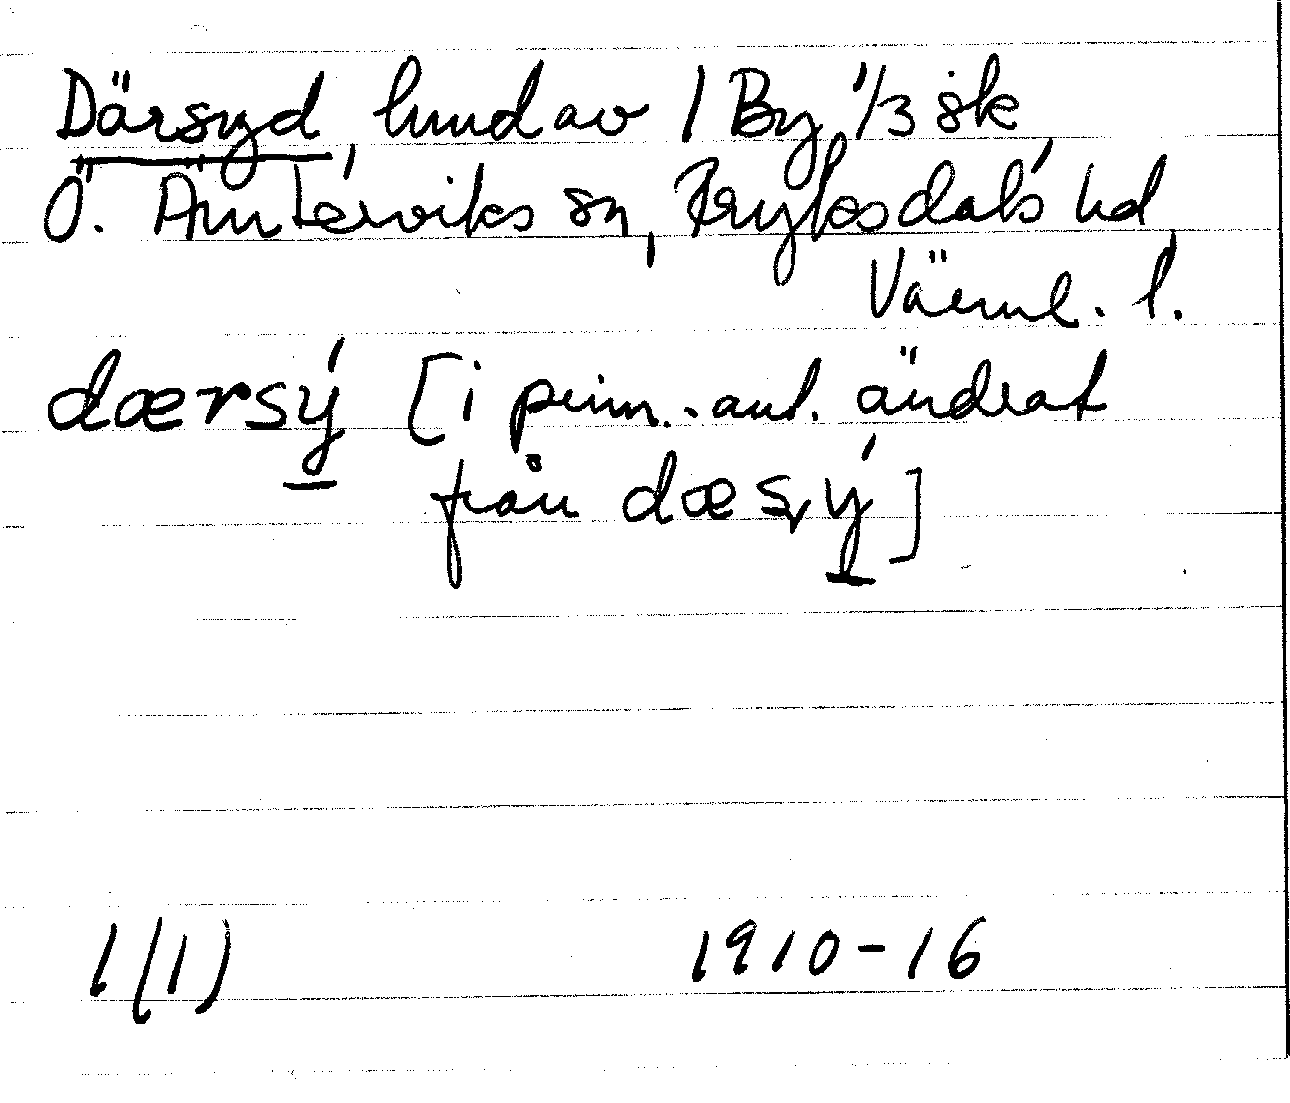 Därsyd, hmd av 1 By, 1/3 sk
Ö. Ämterviks sn, Fryksdals hd,
Värml. l.
dærsý [i prim.-ant. ändrat
från dæsý]
1(1) 1910-16